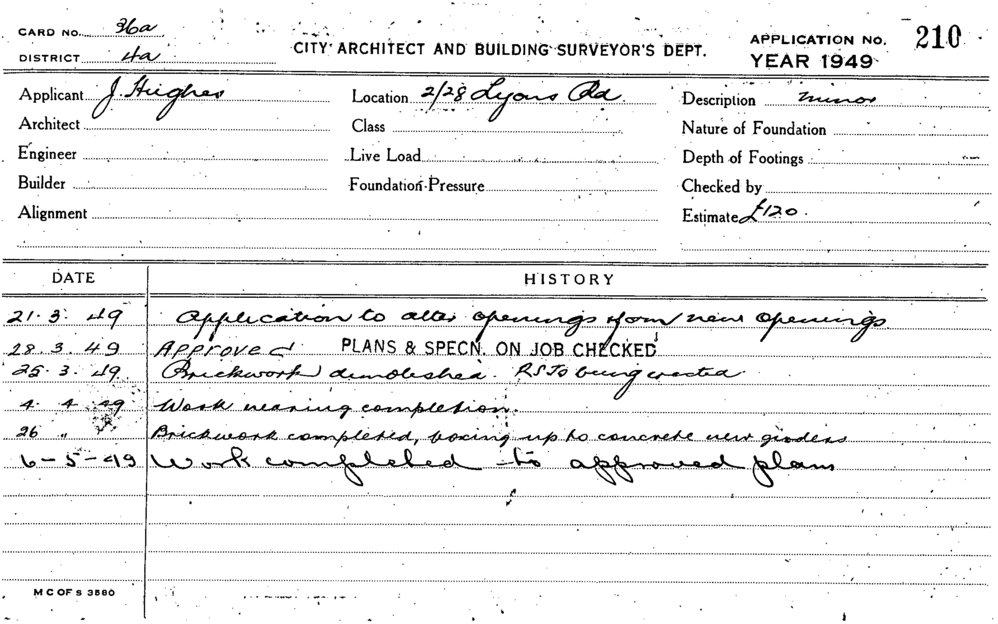 CARD NO. 36a
DISTRICT 4a
CITY ARCHITECT AND BUILDING SURVEYOR'S DEPT.
APPLICATION NO. 210
YEAR 1949
Applicant J. Hughes Location 2/28 Lyons Rd. Description minor
Architect Class Nature of Foundation
Engineer Live Load Depth of Footings
Builder Foundation Pressure Checked by
Alignment Estimate £120.
DATE HISTORY
21.3.49 Application to alter openings & form new openings
28.3.49 Approved PLANS & SPECN. ON JOB CHECKED
25.3.49 Brickwork demolished. RSJs being erected
4.4.49 Work nearing completion.
26 " Brickwork completed, boxing up to concrete new girders
6-5-49 Work completed to approved plans
M C OF S 3580